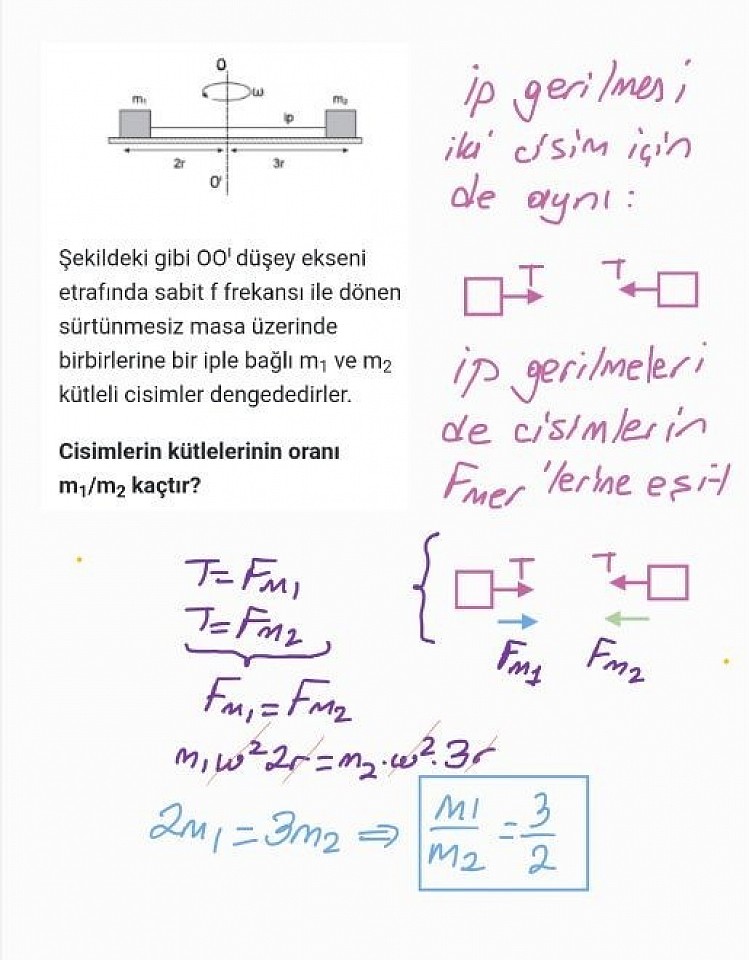 O
ω
m₁
m₂
ip
2r
3r
O'
Şekildeki gibi OOᴵ düşey ekseni
etrafında sabit f frekansı ile dönen
sürtünmesiz masa üzerinde
birbirlerine bir iple bağlı m₁ ve m₂
kütleli cisimler dengededirler.
Cisimlerin kütlelerinin oranı
m₁/m₂ kaçtır?
ip gerilmesi
iki cisim için
de aynı :
T
T
ip gerilmeleri
de cisimlerin
Fmer 'lerine eşit
T
T
FM1
FM2
T=FM1
T=FM2
FM1=FM2
m₁ω²2r=m₂.ω².3r
2m₁=3m₂ ⇒ M1/M2 = 3/2